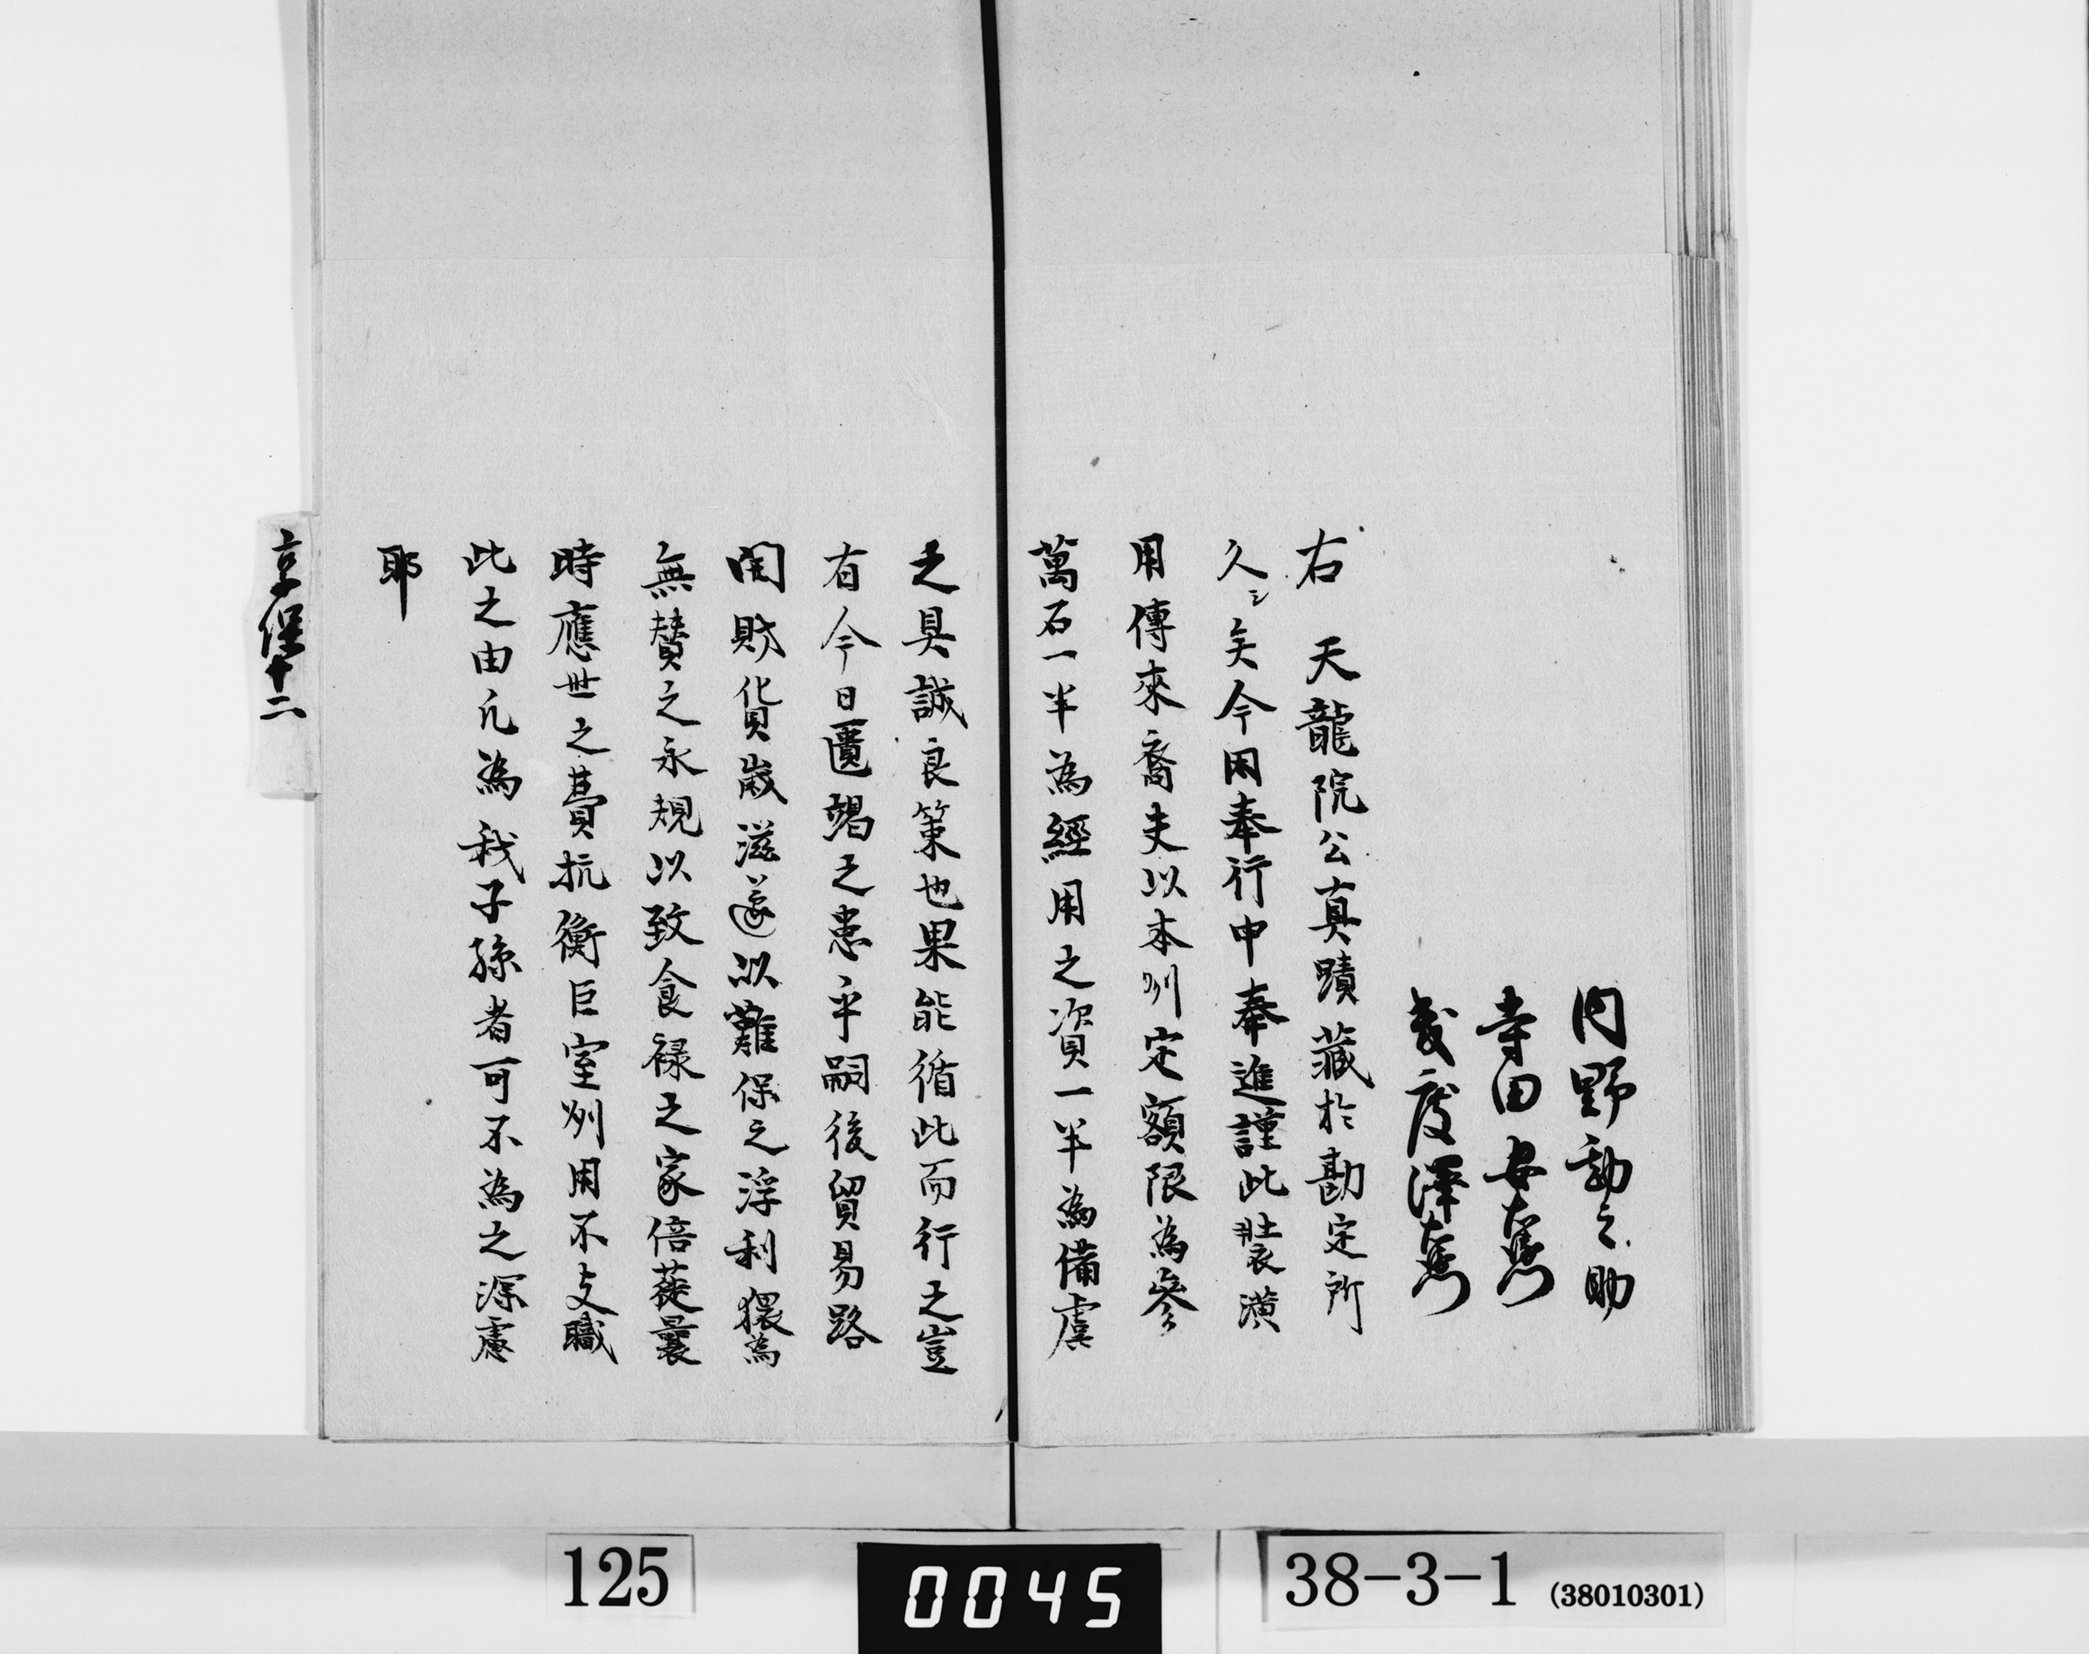 内野勘之助
寺田安右衛門
幾度澤右衛門
右　天龍院公真蹟藏於勘定所
久シ矣今因奉行中奉進謹此裝潢
用傳來裔夫以本州定額限為參
萬石一半為經用之資一半為備虞
之具誠良策也果能循此而行之豈
有今日匱竭之患乎嗣後貿易路
開財貨歲滋遂以難保之浮利猥為
無賛之永規以致食禄之家倍蓰曩
時應世之費抗衡巨室州用不支職
此之由凡為我子孫者可不為之深慮
耶
享保十二
125
0045
38-3-1 (38010301)